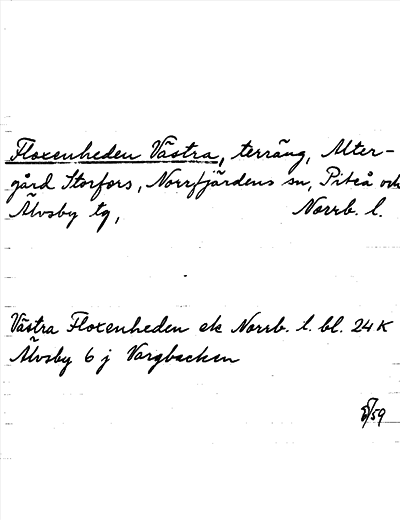 Floxenheden Västra, terräng, Alter-
gård Storfors, Norrfjärdens sn, Piteå och
Älvsby tg, Norrb. l.
Västra Floxenheden ek Norrb. l. bl. 24 K
Älvsby 6 j Vargbacken
/59